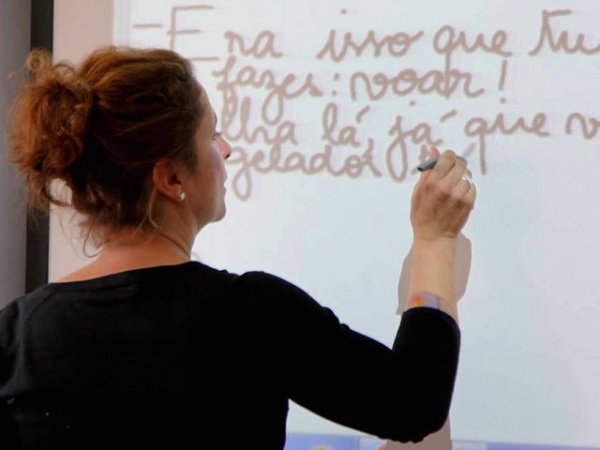 - Era isso que tu
fazes: voar!
lha lá, já que v
gelador,